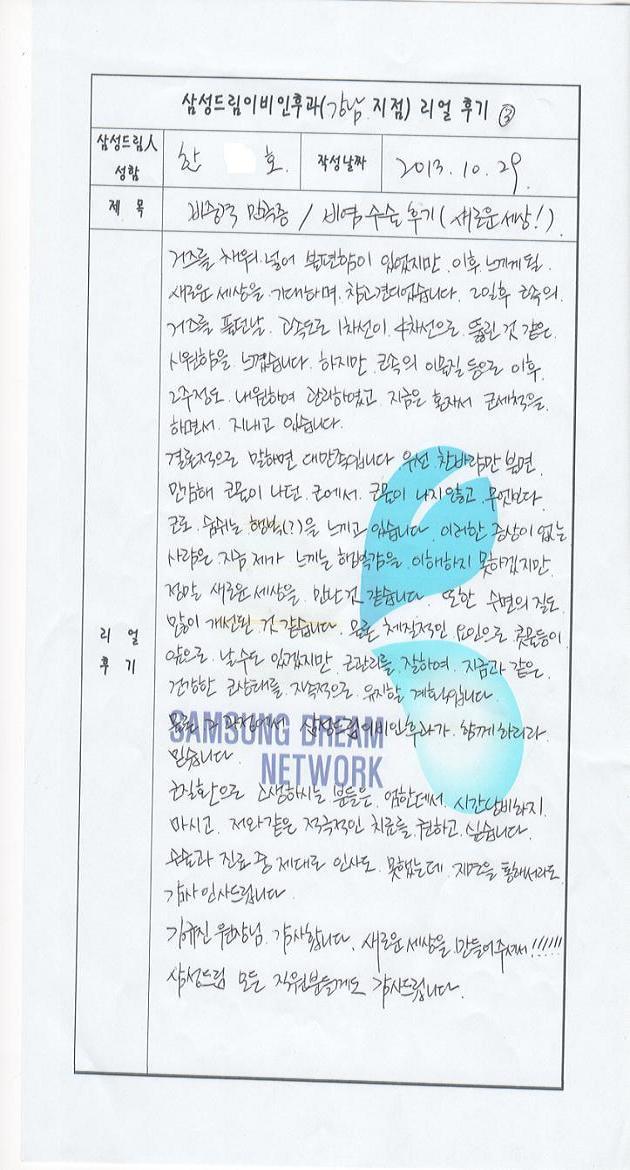 삼성드림이비인후과(강남 지점) 리얼 후기 ③
삼성드림人 성함
찬 호.
작성날짜
2013. 10. 29.
제 목
비중격 만곡증 / 비염수술 후기 (새로운세상!)
리 얼 후 기
거즈를 채워 넣어 불편함이 있었지만 이후 느끼게 될.
새로운 세상을 기대하며, 참고 견디었습니다. 2일후 코속의.
거즈를 풀던날. 고속도로 1차선이 4차선으로 뚫린 것 같은.
시원함을 느꼈습니다. 하지만 코속의 이물질 등으로 이후.
2주정도 내원하여 관리하였고 지금은 혼자서 코세척을.
하면서. 지내고 있습니다.
결론적으로 말하면 대만족입니다. 우선 찬바람만 불면.
민감해 콧물이 나던. 코에서. 콧물이 나지않고 무엇보다.
코로 숨쉬는 행복(?)을 느끼고 있습니다. 이러한 증상이 없는
사람은 지금 제가 느끼는 행복감을 이해하지 못하겠지만.
정말 새로운 세상을 만난것 같습니다. 또한 수면의 질도.
많이 개선된 것 같습니다. 물론 체질적인 요인으로 콧물등이
앞으로 날수도 있겠지만 코관리를 잘하여. 지금과 같은.
건강한 코상태를. 지속적으로 유지할 계획입니다.
물론 그 과정에서 삼성드림이비인후과가. 함께 하리라
믿습니다.
SAMSUNG DREAM
NETWORK
코질환으로 고생하시는 분들은 엄한데서. 시간낭비하지.
마시고. 저와같은 적극적인 치료를 권하고. 싶습니다.
수술과 진료 중 제대로 인사도 못했는데. 지면을 통해서라도.
감사 인사드립니다.
원장님. 감사합니다. 새로운 세상을 만들어주셔서!!!!!!
삼성드림 모든 직원분들께도 감사드립니다.